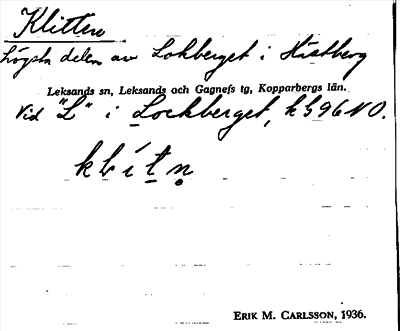 Klitten
högsta delen av Lokberget i Hästberg
Leksands sn, Leksands och Gagnefs tg, Kopparbergs län.
Vid "L" i Lockberget, k 596 NO.
klítn̥
ERIK M. CARLSSON, 1936.